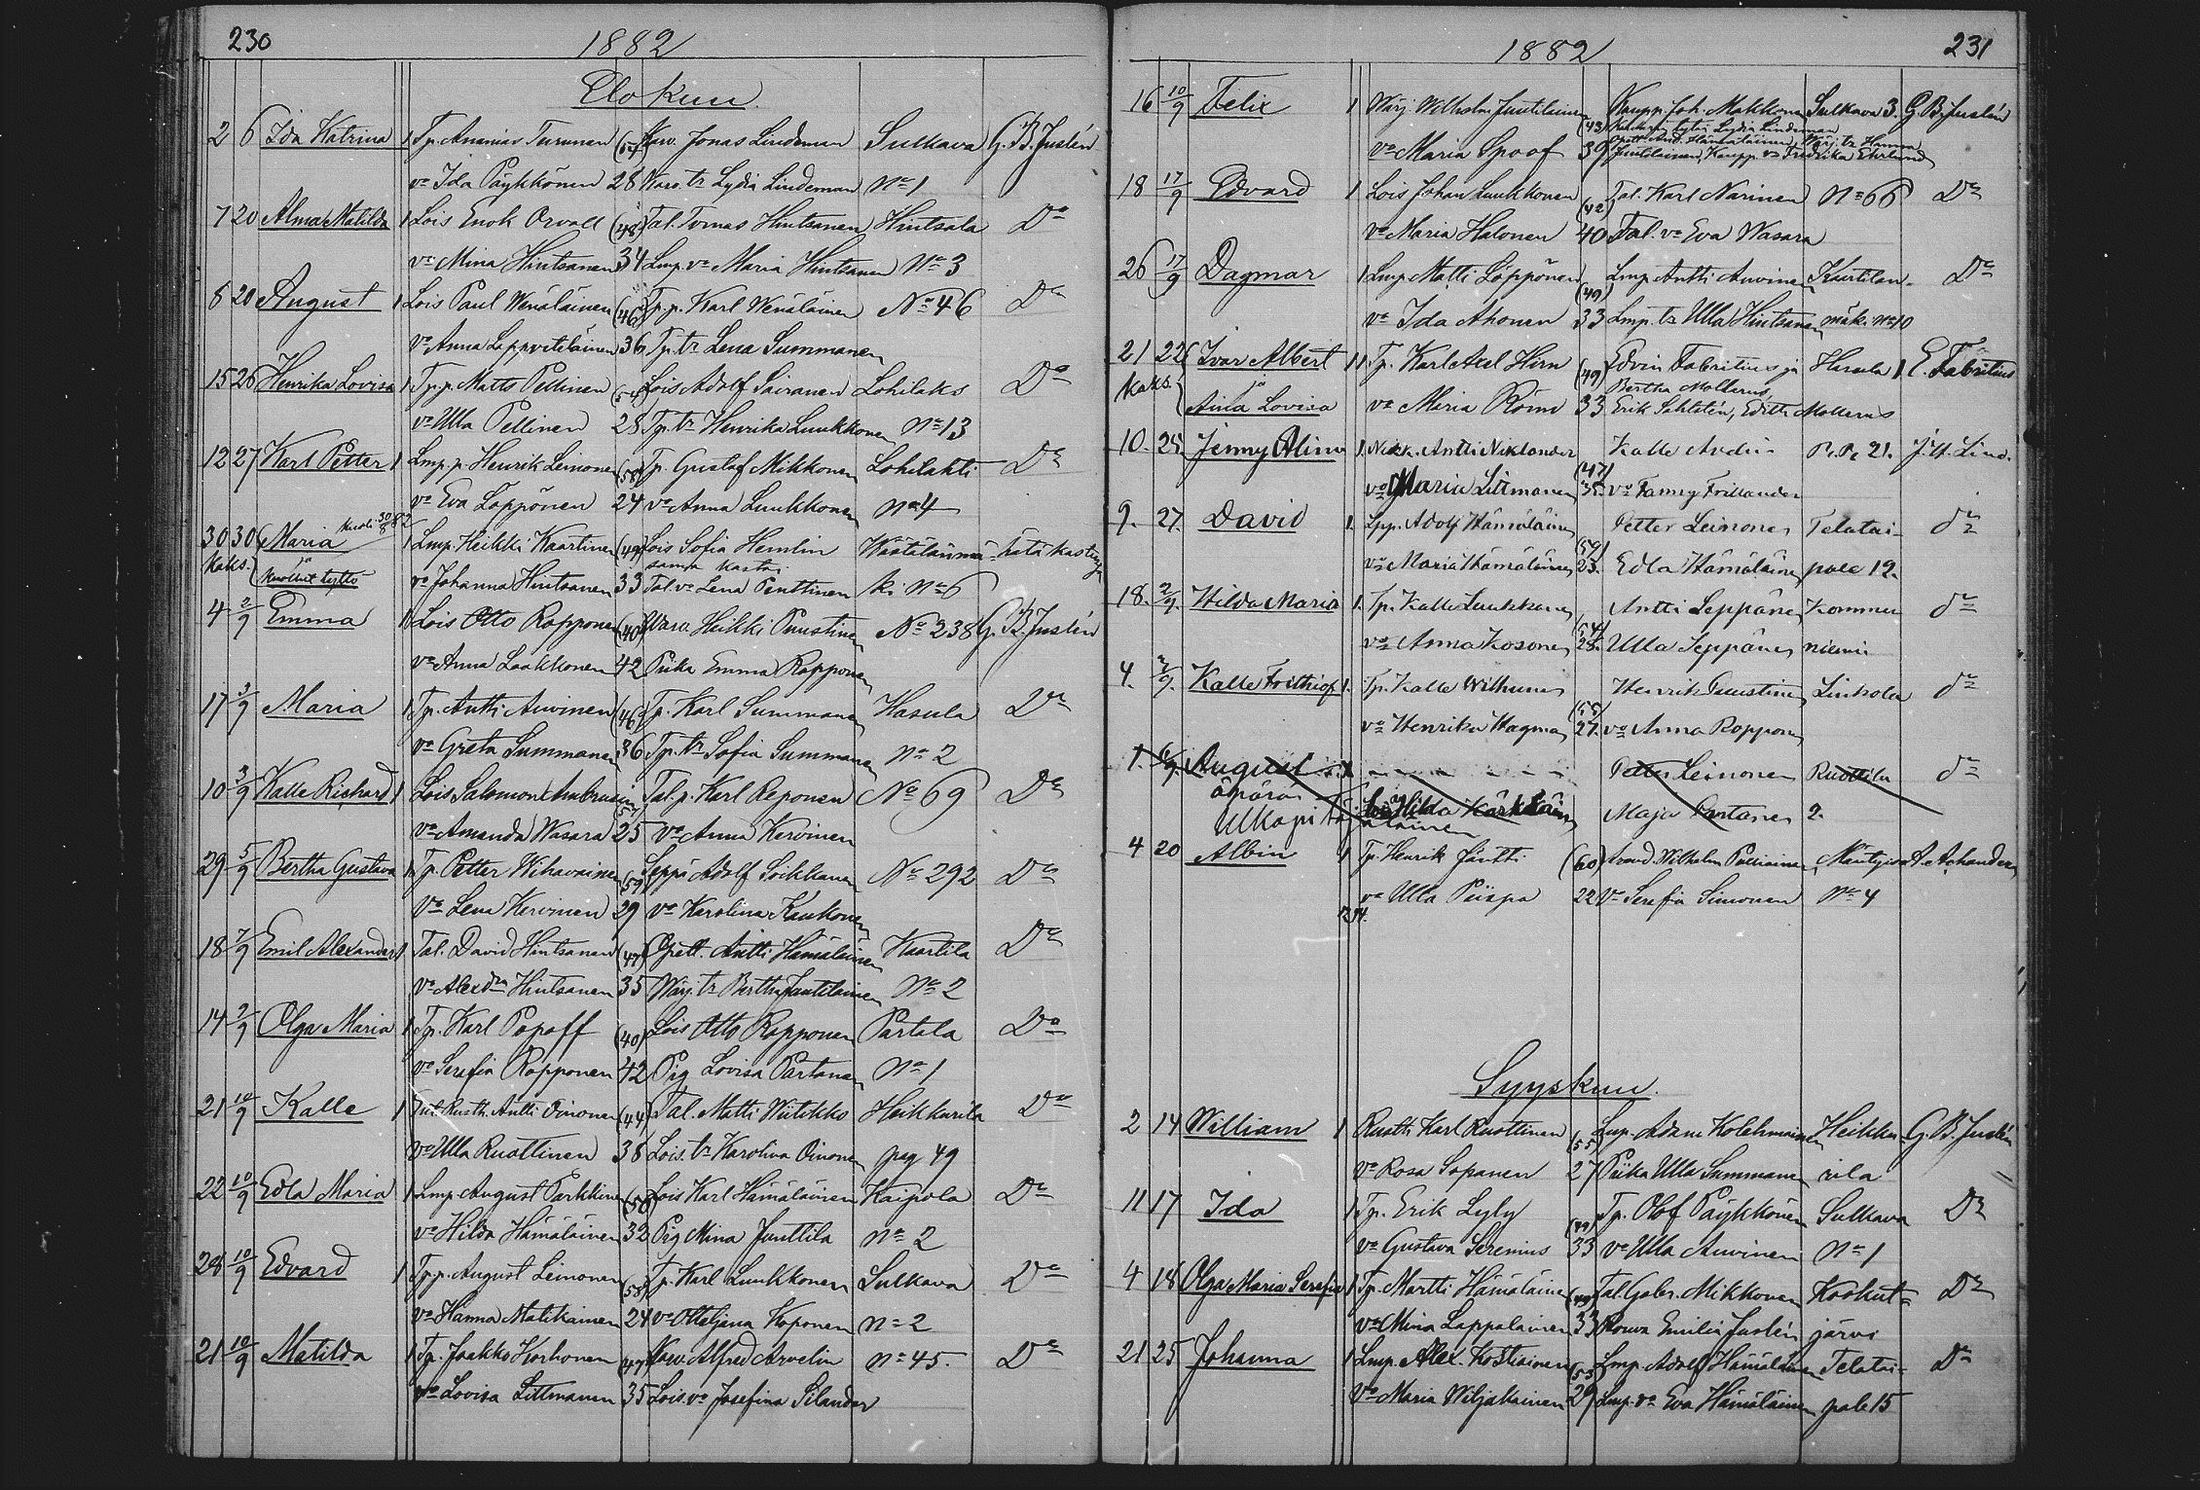 230 1882
Elokuu.
2 6 Ida Katrina 1 Tp. Ananias Turunen (54) Karv. Jonas Lindeman Sulkava G. B. Justén
vo Ida Päykkönen 28 Karv. tr Lydia Lindeman No 1
7 20 Alma Matilda 1 Lois Enok Orvall (48) Tal. Tomas Hintsanen Hintsala Do
vo Mina Hintsanen 34 Lmp. vo Maria Hintsanen No 3
8 20 August 1 Lois Paul Wenäläinen (46) Tp. p. Karl Wenäläinen No 46 Do
vo Anna Lappveteläinen 36 Tp. tr Lena Summanen
15 26 Henrika Lovisa 1 Tp. p. Matts Pellinen (54) Lois Adolf Sairanen Lohilaks Do
vo Ulla Pellinen 28 Tp. tr Henrika Luukkonen No 13
12 27 Karl Petter 1 Lmp. p. Henrik Leinonen (58) Tp. Gustaf Mikkonen Lohilahti Do
vo Eva Löppönen 24 vo Anna Luukkonen No 4
30 30 Maria kuoli 30/8 82 1 Lmp. Heikki Kaartinen (49) Lois Sofia Hemlin Wäätälänmä- hätä kastettu
kaks. ja kuollut tyttö vo Johanna Hintsanen 33 sama kastoi Tal. vo Lena Penttinen ki No 6
4 2/9 Emma 1 Lois Otto Ropponen (40) Karv. Heikki Puustinen No 238 G. B. Justén
vo Anna Laakkonen 42 Piika Emma Ropponen
17 3/9 Maria 1 Tp. Antti Auvinen (46) Tp. Karl Summanen Hasula Do
vo Greta Summanen 36 Tp. tr Sofia Summanen No 2
10 3/9 Kalle Richard 1 Lois Salomon Ambrusin (57) Tal. p. Karl Reponen No 69 Do
vo Amanda Wasara 25 vo Anna Kervinen
29 5/9 Bertha Gustava 1 Tp. Petter Wihavainen (59) Seppä Adolf Soikkanen No 292 Do
vo Lena Kervinen 29 vo Karolina Kaukonen
18 7/9 Emil Alexander 1 Tal. David Hintsanen (47) Opett. Antti Hämäläinen Kaartila Do
vo Alexdra Hintsanen 35 Wärj. tr Bertha Jantilainen No 2
14 9/9 Olga Maria 1 Tp. Karl Popoff (40) Lois Otto Ropponen Partala Do
vo Serafia Ropponen 42 Pig Lovisa Partanen No 1
21 10/9 Kalle 1 Tal. Rusth. Antti Oinonen (44) Tal. Matti Wiitikko Heikkurila Do
vo Ulla Ruottinen 38 Lois. tr Karolina Oinonen pag 49
22 10/9 Edla Maria 1 Lmp. August Parkkinen (50) Lois Karl Hämäläinen Kaipola Do
vo Hilda Hämäläinen 32 Pig Mina Janttila No 2
28 10/9 Edvard 1 Tp. p. August Leinonen (58) Tp. Karl Luukkonen Sulkava Do
vo Hanna Matikainen 24 vo Ottiljana Koponen No 2
21 10/9 Matilda 1 Tp. Jaakko Korhonen (47) Karv. Alfred Arvelin No 45. Do
vo Lovisa Littmanen 35 Lois. vo Josefina Silander
1882 231
16 10/9 Felix 1 Wärj. Wilhelm Jantilainen (43) Kaupp. Joh. Makkonen Sulkava 3. G. B. Justén
vo Maria Spoof 39 tytär Lydia Lindeman
Opett. And. Hämäläinen, Wärj. tr Hanna
Jantilainen, Kaupp. vo Fredrika Ehrlund
18 17/9 Edvard 1 Lois Johan Luukkonen (42) Tal. Karl Narinen No 66 Do
vo Maria Halonen 40 Tal. vo Eva Wasara
26 17/9 Dagmar 1 Lmp. Matti Löppönen (49) Lmp. Antti Auvinen Kartilan- Do
vo Ida Ahonen 33 Lmp. tr Ulla Hintsanen mäki No 10
21 22 Ivar Albert 1 1 Tp. Karl Axel Hirn (49) Edvin Fabritius ja Hasula 1 E. Fabritius
kaks. ja Bertha Mollerus
Aina Lovisa vo Maria Römö 33 Erik Sahlstén, Edith Mollerus
10. 24. Jenny Alina 1. Nikk. Antti Niklander (47) Kalle Ardin P. P. 21. J. H. Lind.
vo Maria Littmanen 35. vo Fanny Frilander
9. 27. David 1. Lpp. Adolf Hämäläinen (59) Petter Leinonen Telatai- do
vo Maria Hämäläinen 23. Edla Hämäläinen pale 12.
18. 2/9. Hilda Maria 1. Tp. Kalle Luukkonen (54) Antti Seppänen Kommer do
vo Anna Kosonen 28. Ulla Seppänen niemi
4. 3/9. Kalle Frithiof 1. Tp. Kalle Wilhunen (55) Henrik Puustinen Linkola do
vo Henrika Hagman 27. vo Anna Ropponen
1. 6/9. August Petter Leinonen Ruottila do
äpärä Hilda Kärkkäinen Maja Partanen 2.
Ulkopitäjäläinen
4 20 Albin 1 Tp. Henrik Jäntti (60) Arvid Wilhelm Pulliainen Mäntysa A. Achander
vo Ulla Piispa 22 vo Serafia Simonen No 4
Syyskuu.
2 14 William 1 Rusth. Karl Ruottinen (55) Lmp. Adam Kolehmainen Heikku- G. B. Justén
vo Rosa Sopanen 27 Piika Ulla Summanen rila
11 17 Ida 1 Tp. Erik Lyly (49) Tp. Olof Päykkönen Sulkava Do
vo Gustava Serenius 33 vo Ulla Auvinen No 1
4 18 Olga Maria Serafia 1 Tp. Martti Hämäläinen (49) Tal. Gabr. Mikkonen Koskut- Do
vo Mina Lappalainen 33 Rouva Emilia Justén järvi
21 25 Johanna 1 Lmp. Alex. Kostiainen (53) Lmp. Adolf Hämäläinen Telatai- Do
vo Maria Wiljakainen 29 Lmp. vo Eva Hämäläinen pale 15